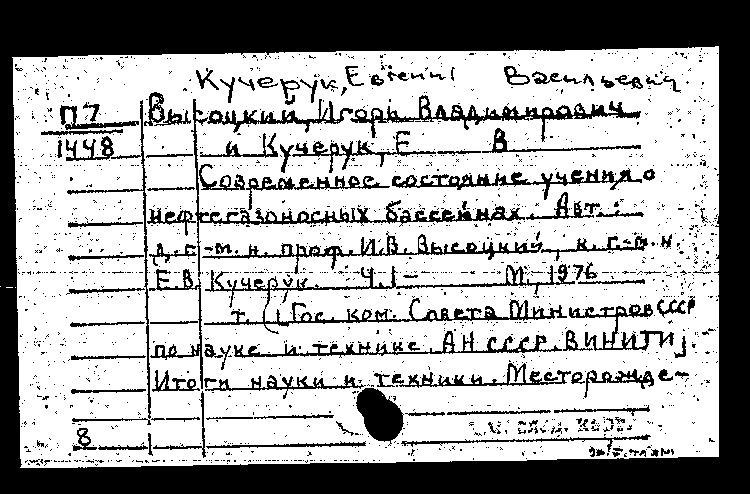 Кучерук, Евгений Васильевич
П7 Высоцкий, Игорь Владимирович
1448 и Кучерук, Е В
Современное состояние учения о
нефтегазоносных бассейнах. Авт.:
д.г.-м.н. проф. И.В. Высоцкий, к.г.-м.н.
Е.В. Кучерук. Ч.1- М., 1976
т. (Гос. ком. Совета Министров СССР
по науке и технике. АН СССР. ВИНИТИ).
Итоги науки и техники. Месторожде-
8
см. след. карт.